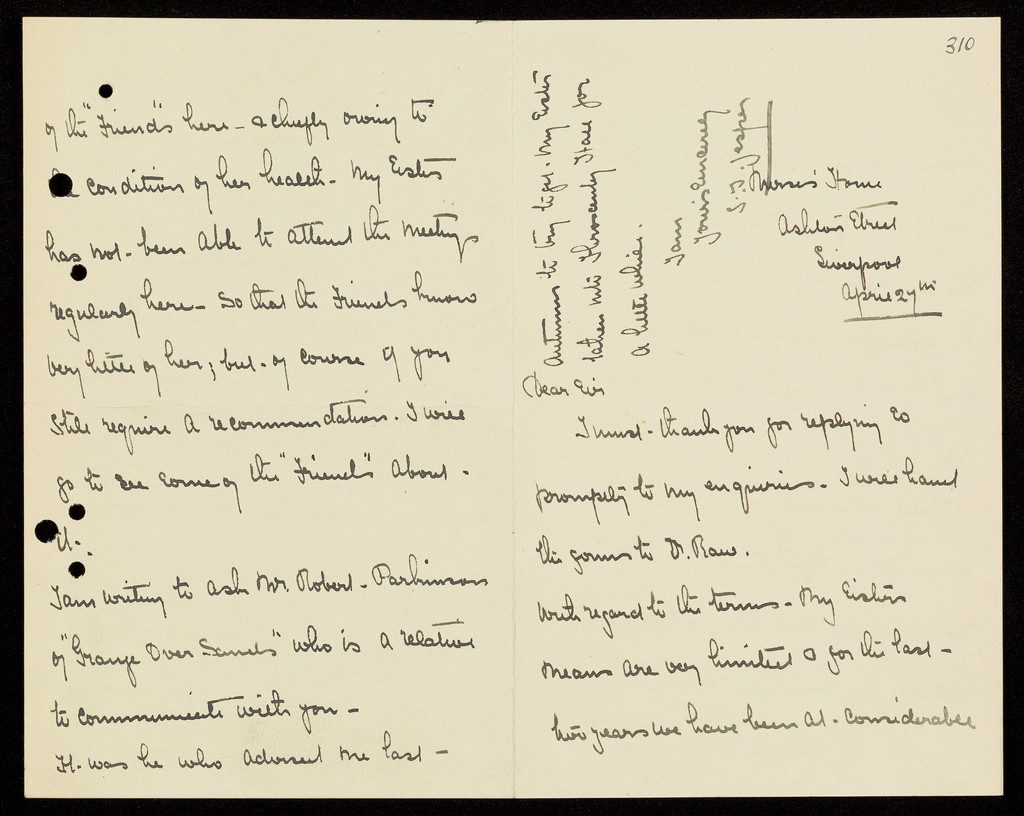 310
Nurses' Home
Ashton Street
Liverpool
April 27th
Dear Sir
I must thank you for replying so
promptly to my enquiries - I will hand
the forms to Dr. Raw.
With regard to the terms - My Sister's
means are very limited & for the last -
two years we have been at - considerable
of the "Friends" here - & chiefly owing to
the condition of her health - My Sister
has not - been able to attend the meetings
regularly here - So that the Friends know
very little of her; but - of course if you
still require a recommendation. I will
go to see some of the "Friends" about -
it -.
I am writing to ask Mr. Robert - Parkinson
of "Grange Over Sands" who is a relative
to communicate with you -
It - was he who advised me last -
Autumn to try to get - My Sister
taken into The Hall for
a little while.
I am
Yours Sincerely
S. J. Jesper